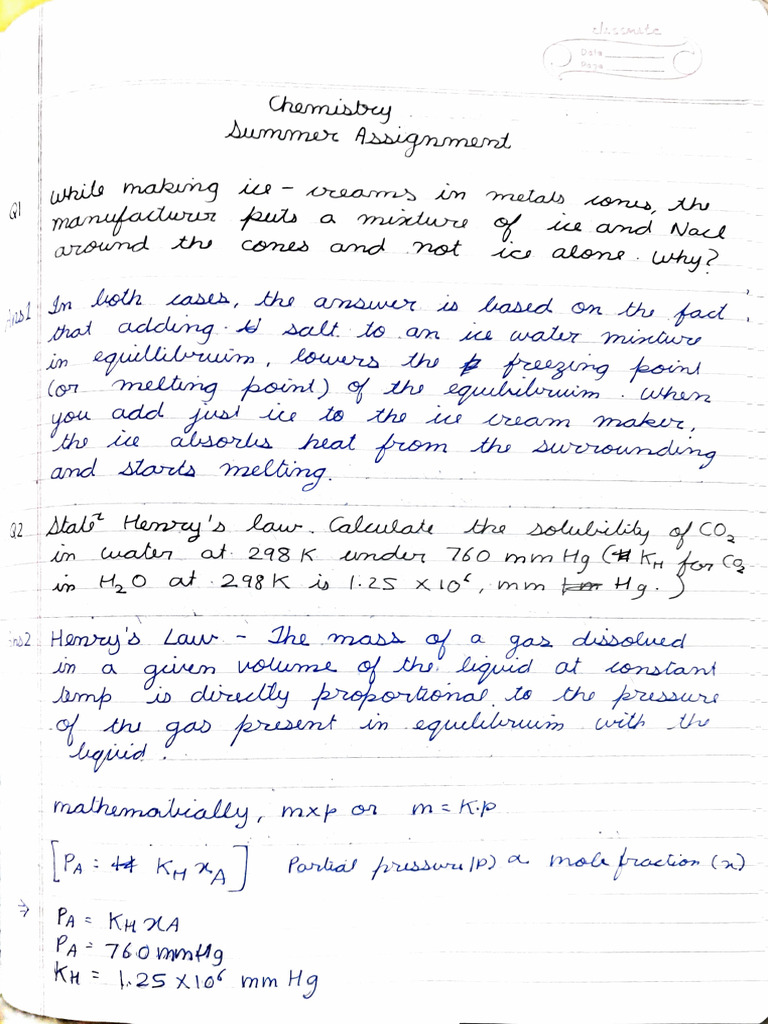 classmate
Date
Page
Chemistry
Summer Assignment
Q1 While making ice - creams in metals cones, the
manufacturer puts a mixture of ice and Nacl
around the cones and not ice alone. Why?
Ans1 In both cases, the answer is based on the fact
that adding salt to an ice water mixture
in equillibruim, lowers the freezing point
(or melting point) of the equbilibruim. When
you add just ice to the ice cream maker,
the ice absorbs heat from the surrounding
and starts melting.
Q2 State Henry's law. Calculate the solubility of CO₂
in water at 298 K under 760 mm Hg (KH for CO₂
in H₂O at 298K is 1.25 × 10⁶, mm Hg.)
Ans2 Henry's Law - The mass of a gas dissolved
in a given volume of the liquid at constant
temp is directly proportional to the pressure
of the gas present in equilibrium with the
liquid.
mathematically, m∝p or m = K.p
[PA = KH xA] Partial pressure(p) α mole fraction (x)
⇒ PA = KH xA
PA = 760 mmHg
KH = 1.25 × 10⁶ mm Hg